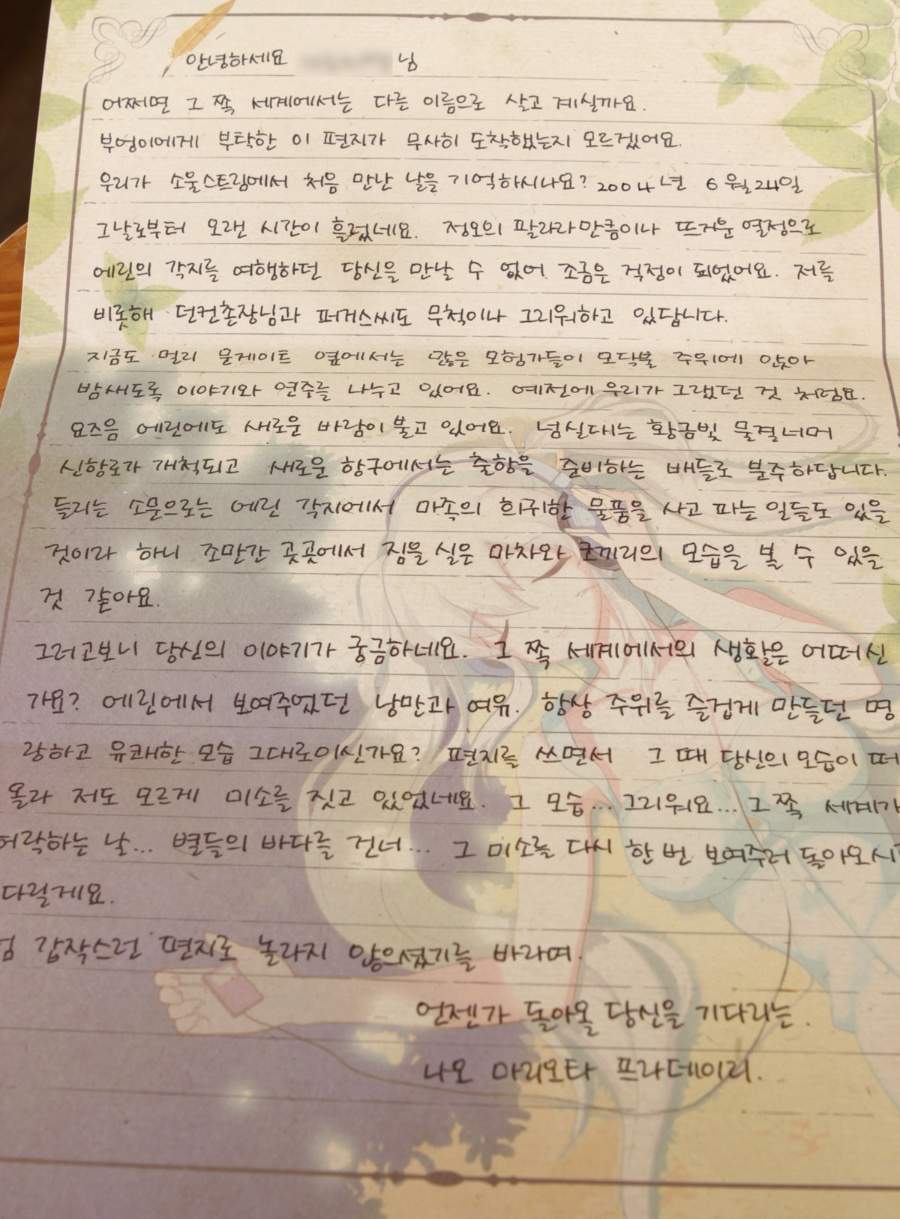 안녕하세요 님
어쩌면 그 쪽 세계에서는 다른 이름으로 살고 계실까요.
부엉이에게 부탁한 이 편지가 무사히 도착했는지 모르겠어요.
우리가 소울스트림에서 처음 만난 날을 기억하시나요? 2004년 6월24일
그날로부터 오랜 시간이 흘렀네요. 정오의 팔라라만큼이나 뜨거운 열정으로
에린의 각지를 여행하던 당신을 만날 수 없어 조금은 걱정이 되었어요. 저를
비롯해 던컨촌장님과 퍼거스씨도 무척이나 그리워하고 있답니다.
지금도 멀리 문게이트 옆에서는 많은 모험가들이 모닥불 주위에 앉아
밤새도록 이야기와 연주를 나누고 있어요. 예전에 우리가 그랬던 것 처럼요.
요즈음 에린에도 새로운 바람이 불고 있어요. 넘실대는 황금빛 물결너머
신항로가 개척되고 새로운 항구에서는 출항을 준비하는 배들로 분주하답니다.
들리는 소문으로는 에린 각지에서 마족의 희귀한 물품을 사고 파는 일들도 있을
것이라 하니 조만간 곳곳에서 짐을 실은 마차와 코끼리의 모습을 볼 수 있을
것 같아요.
그러고보니 당신의 이야기가 궁금하네요. 그 쪽 세계에서의 생활은 어떠신
가요? 에린에서 보여주었던 낭만과 여유. 항상 주위를 즐겁게 만들던 명
랑하고 유쾌한 모습 그대로이신가요? 편지를 쓰면서 그 때 당신의 모습이 떠
올라 저도 모르게 미소를 짓고 있었네요. 그 모습... 그리워요... 그 쪽 세계가
허락하는 날... 별들의 바다를 건너... 그 미소를 다시 한 번 보여주러 돌아오시
다릴게요.
갑작스런 편지로 놀라지 않으셨기를 바라며.
언젠가 돌아올 당신을 기다리는.
나오 마리오타 프라데이리.